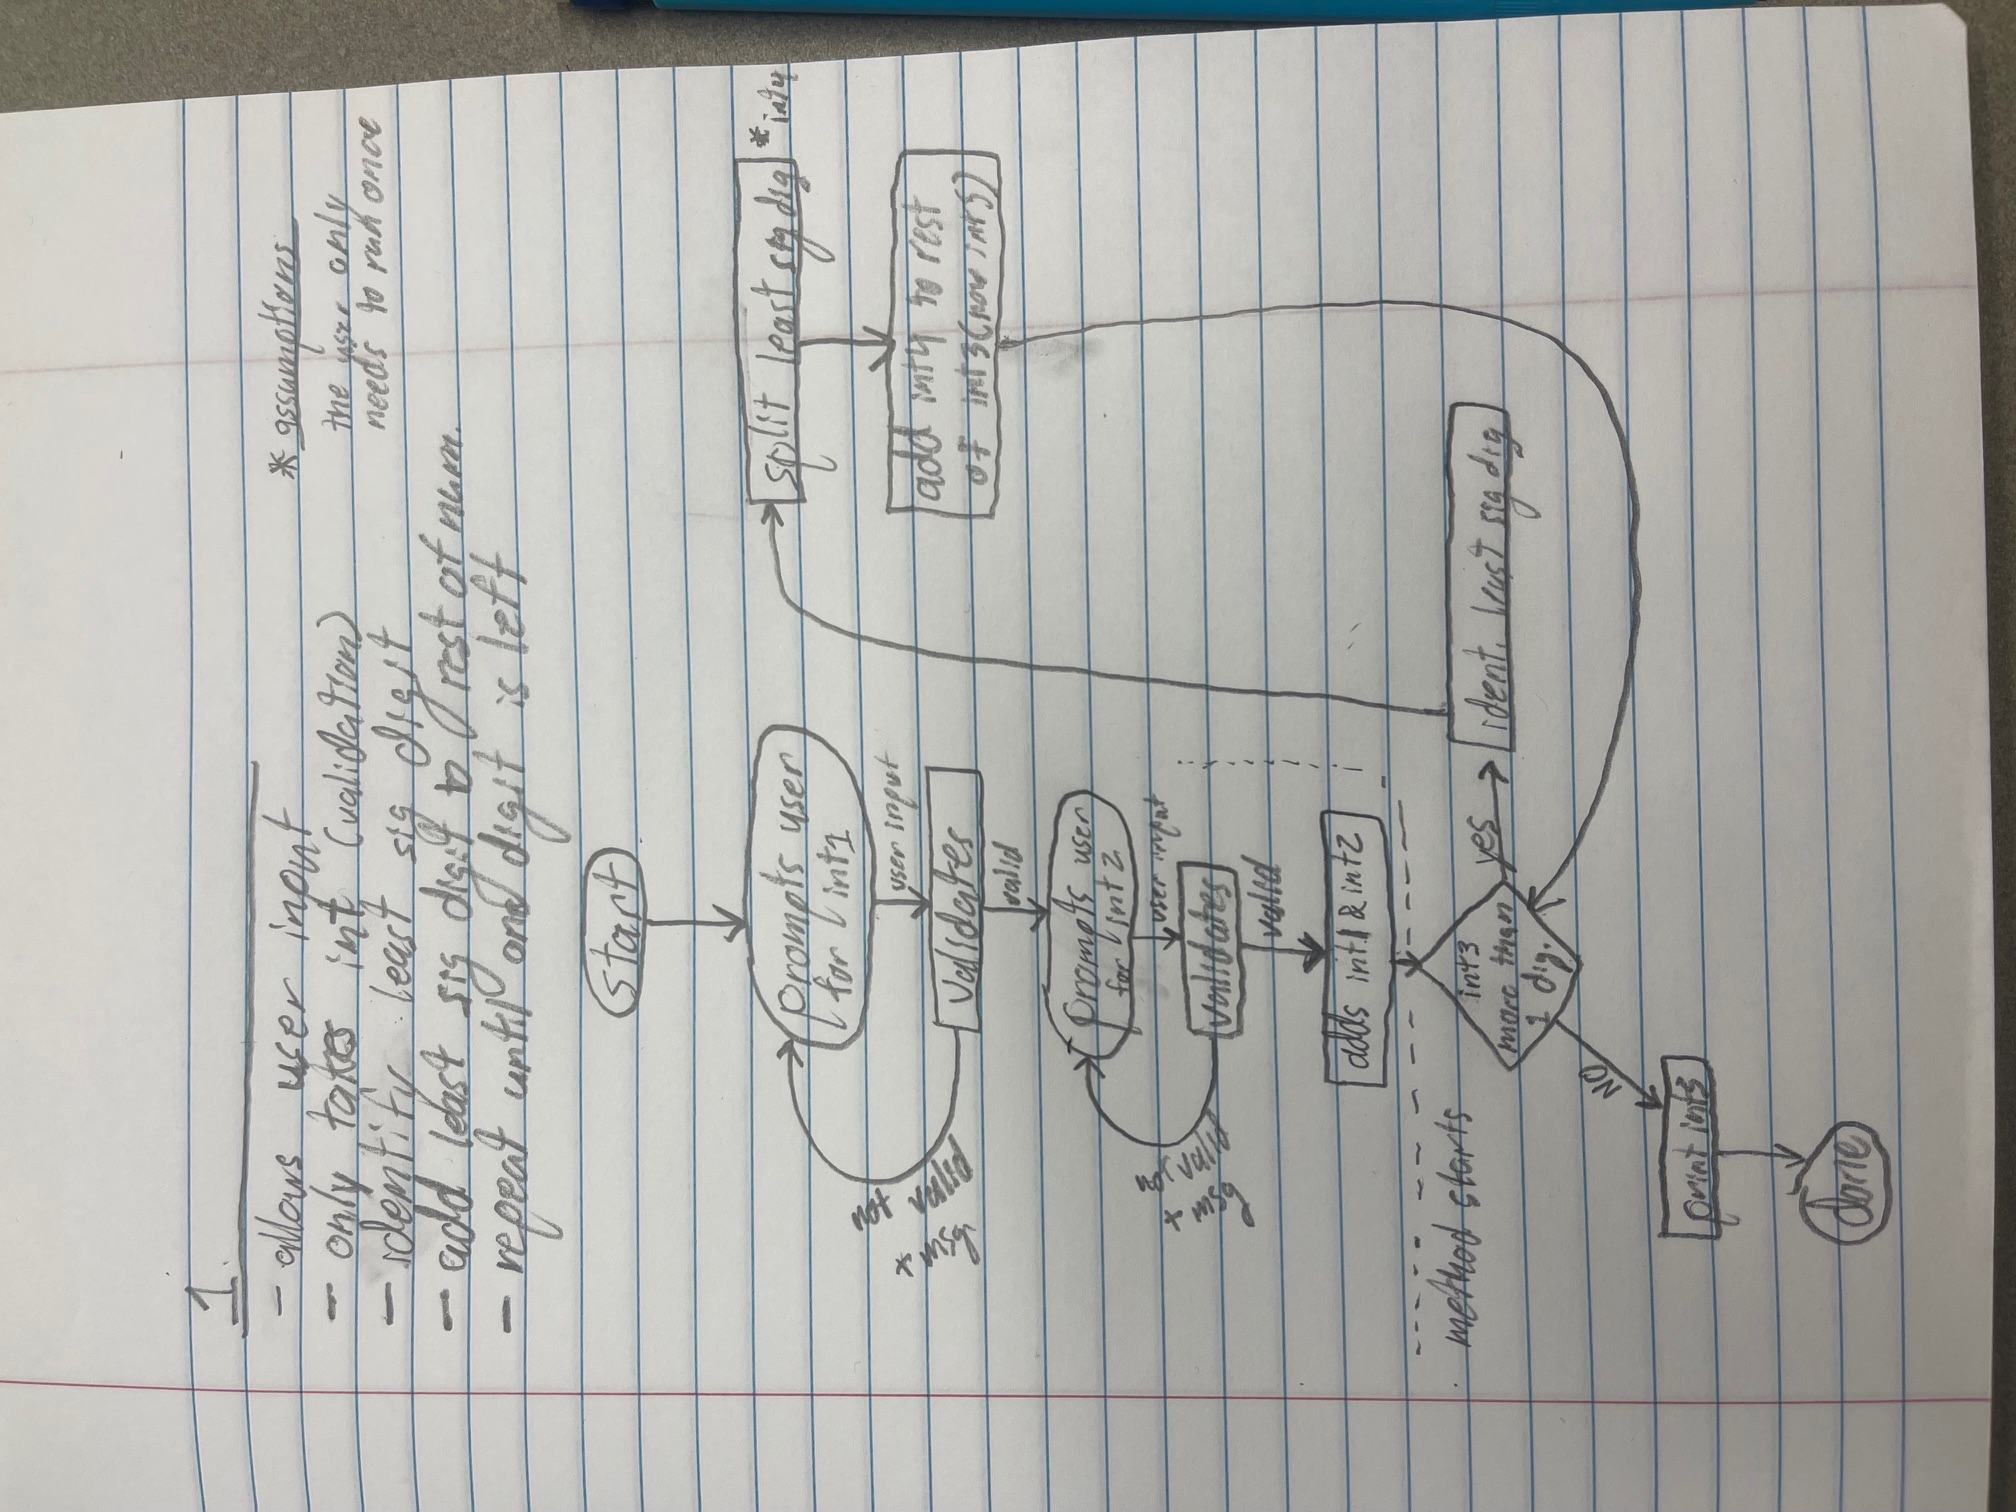 1.
- allows user input
- only takes int (validation)
- identify least sig digit
- add least sig digit to rest of num.
- repeat until one digit is left
* assumptions
the user only
needs to run once
start
prompts user
for int1
user input
validates
not valid
+ msg
valid
prompts user
for int2
user input
validates
not valid
+ msg
valid
adds int1 & int2
method starts
int3
more than
1 dig.
yes
ident. least sig dig
split least sig dig
* int4
add int4 to rest
of int3 (now int5)
NO
print int3
done